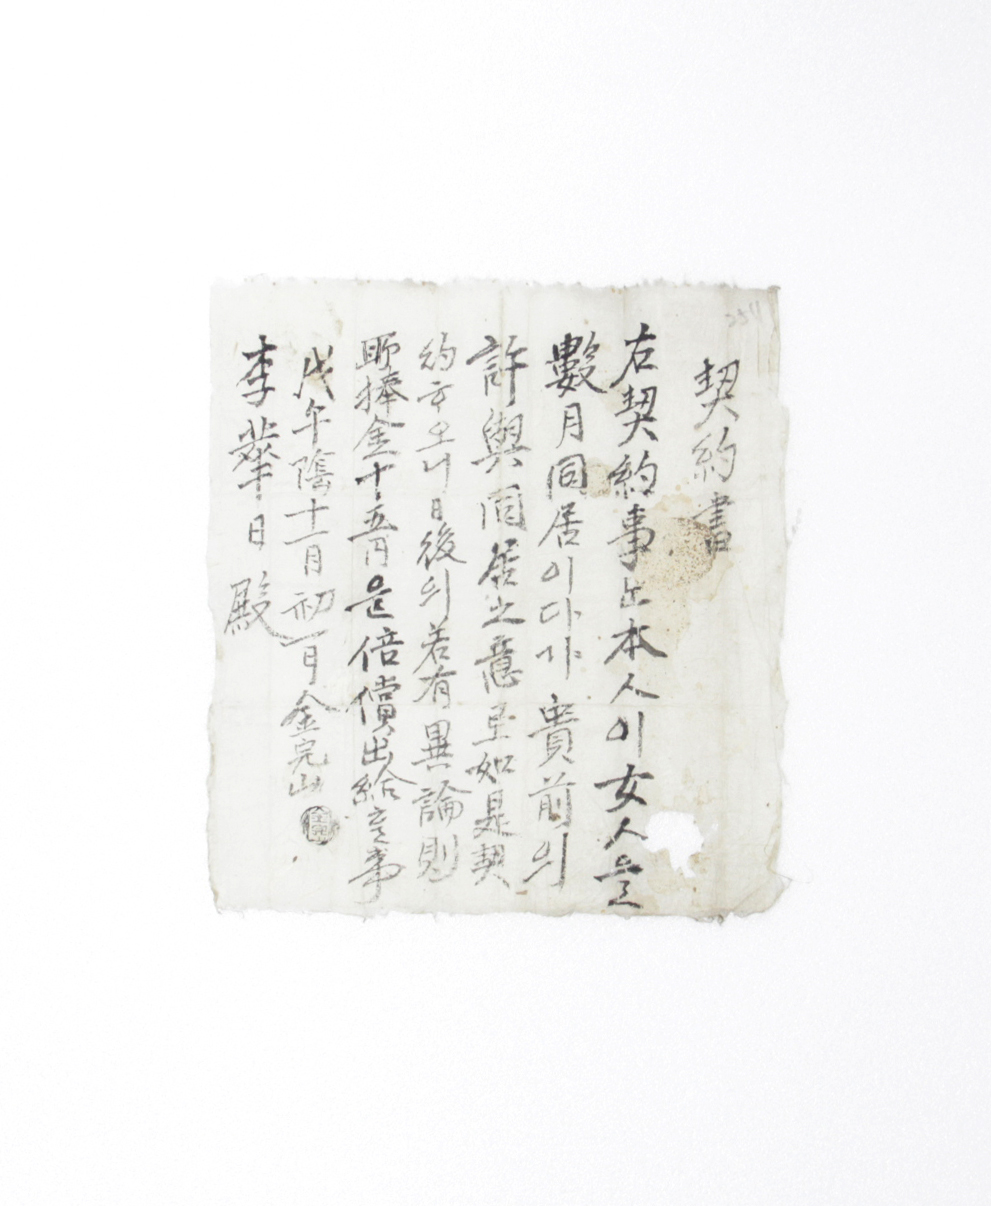 契約書
右契約事と本人이女人을
數月同居이다가貴前의
許與同居之意로如是契
約하오니日後의若有異論則
所捧金十五円은倍償出給홀事
戊午陰十一月初一日 金完山
李華日 殿